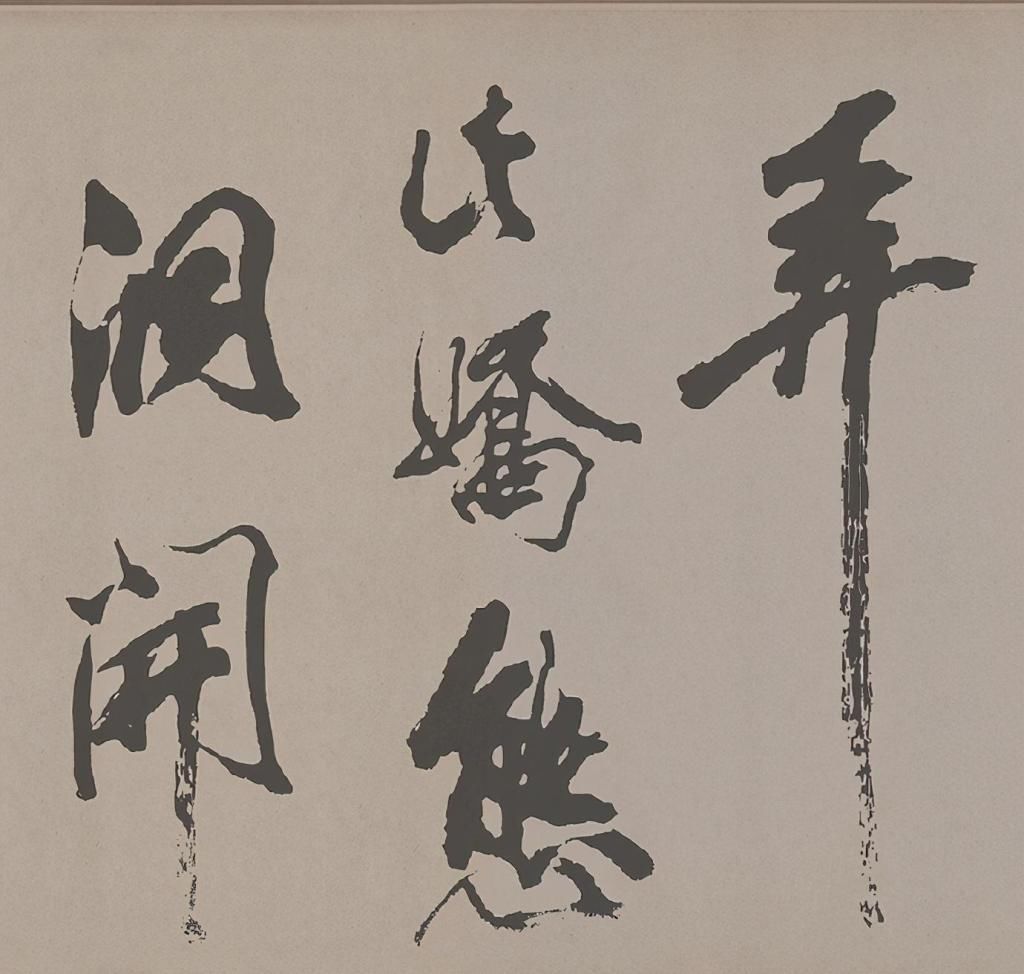 弄
此嬌態
洞開